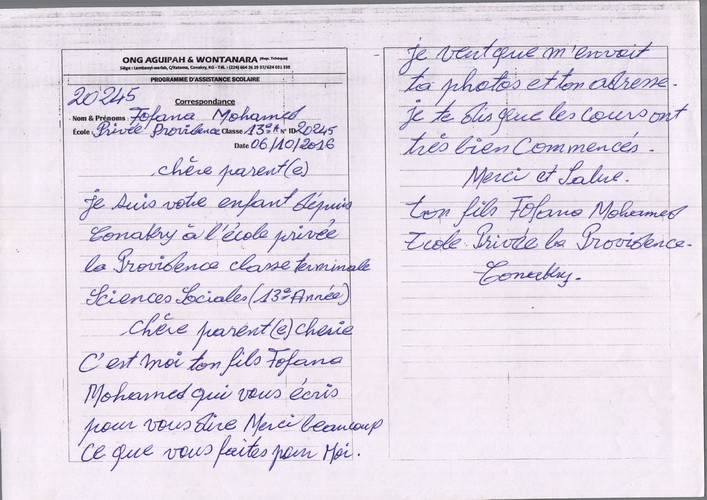 ONG AGUIPAH & WONTANARA (Rep. Tchèque)
PROGRAMME D'ASSISTANCE SCOLAIRE
20245
Correspondance
Nom & Prénoms Fofana Mohamed
École Privée Providence Classe 13e A N° ID 20245
Date 06/10/2016
chère parent(e)
je suis votre enfant dépuis
Conakry à l'école privée
la Providence classe terminale
Sciences Sociales (13e Année)
chère parent(e) cherie
C'est moi ton fils Fofana
Mohamed qui vous écris
pour vous dire Merci beaucoup
ce que vous faites pour Moi.
je veut que m'envoit
ta photos et ton adresse.
je te dis que les cours ont
très bien Commencés.
Merci et Salue.
ton fils Fofana Mohamed
Ecole Privée la Providence.
Conakry.